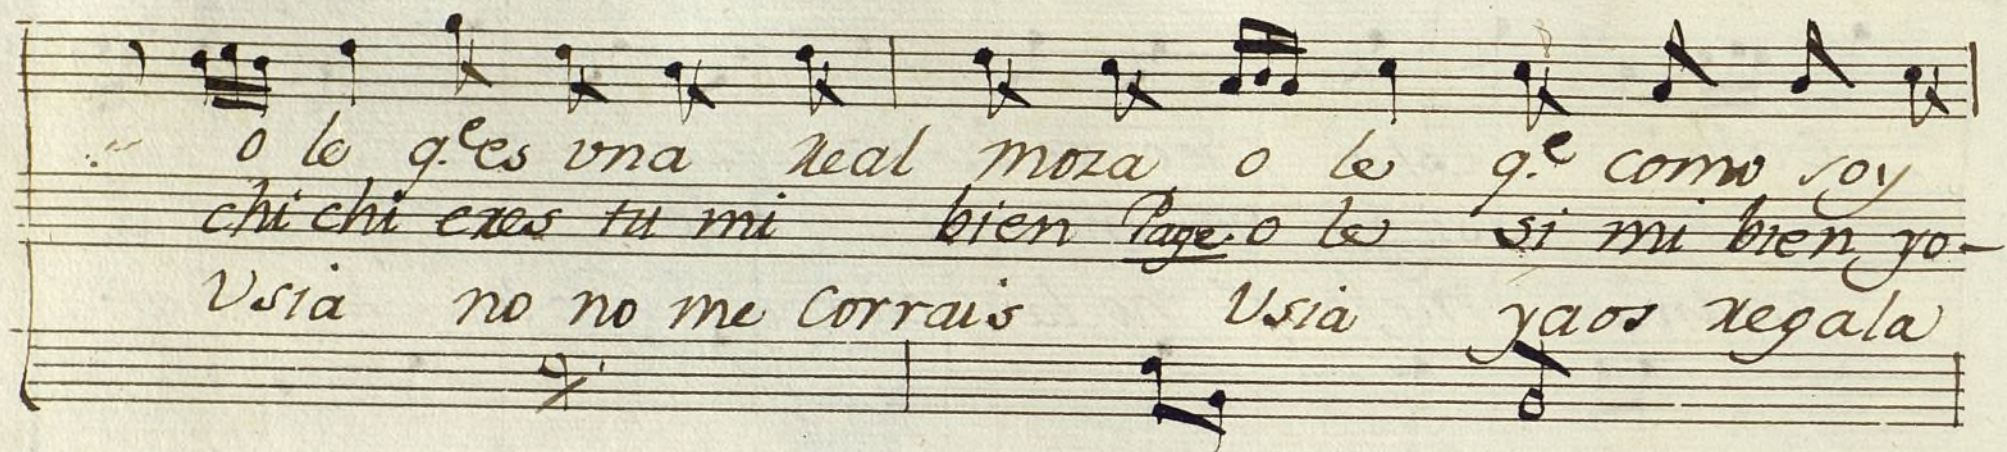 o le q.e es vna real moza o le q.e como soy
chi chi eres tu mi bien Page. o le si mi bien yo-
Vsia no no me Corrais Vsia yaos regala